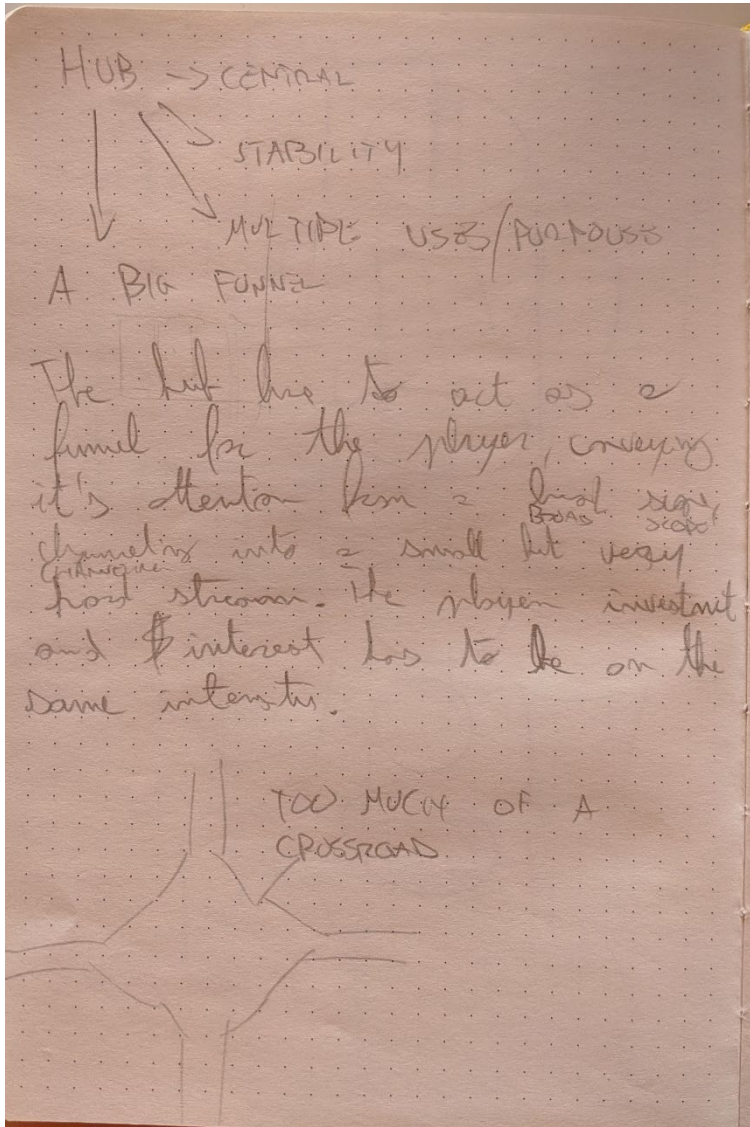 HUB -> CENTRAL
STABILITY
MULTIPLE USES/PURPOUSES
A BIG FUNNEL
The hub has to act as a
funnel for the player, conveying
it's attention from a broad
BROAD SCOPE
channeling into a small but very
CHANNELING
hard stream. The player investment
and interest has to be on the
same intensity.
TOO MUCH OF A
CROSSROAD